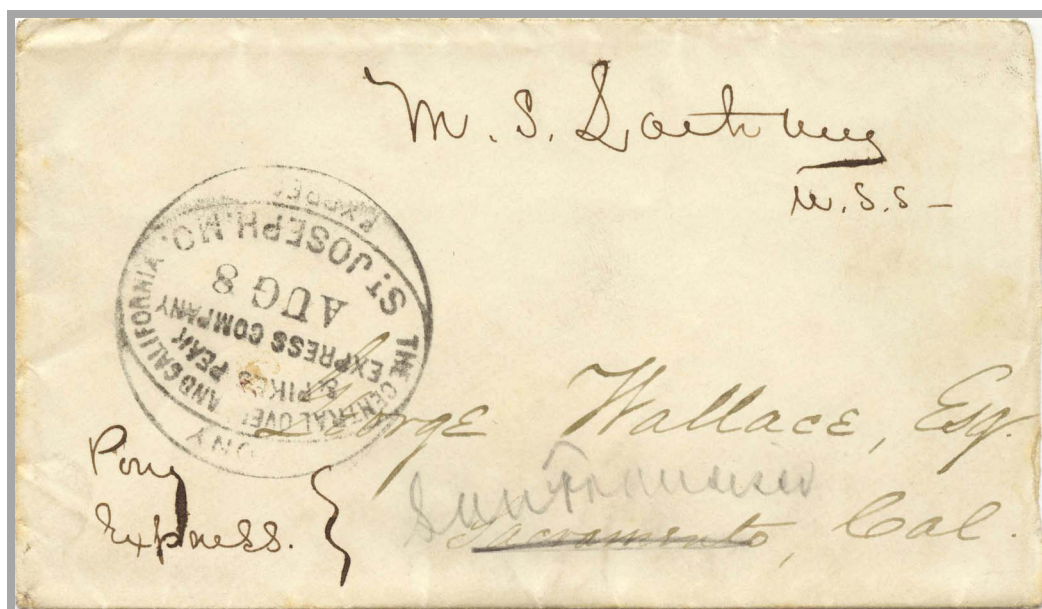 M. S. Latham
U.S.S-
PONY EXPRESS
THE CENTRAL OVERLAND CALIFORNIA
& PIKES PEAK
EXPRESS COMPANY
AUG 8
ST. JOSEPH. MO.
George Wallace, Esq.
San Francisco
Sacramento, Cal.
Pony
Express.